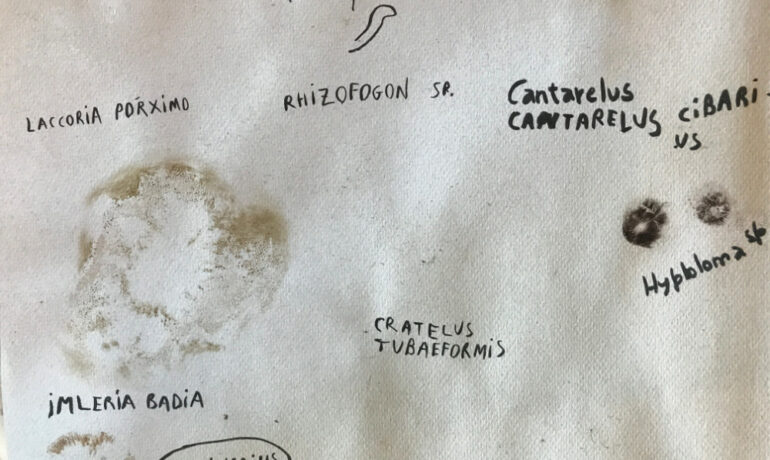 LACCORIA PÓRXIMO
RHIZOFOGON SR.
Cantarelus
CANTARELUS CiBARi-
US
Hypholoma sp
CRATELUS
TUBAEFORMIS
iMLERiA BADiA